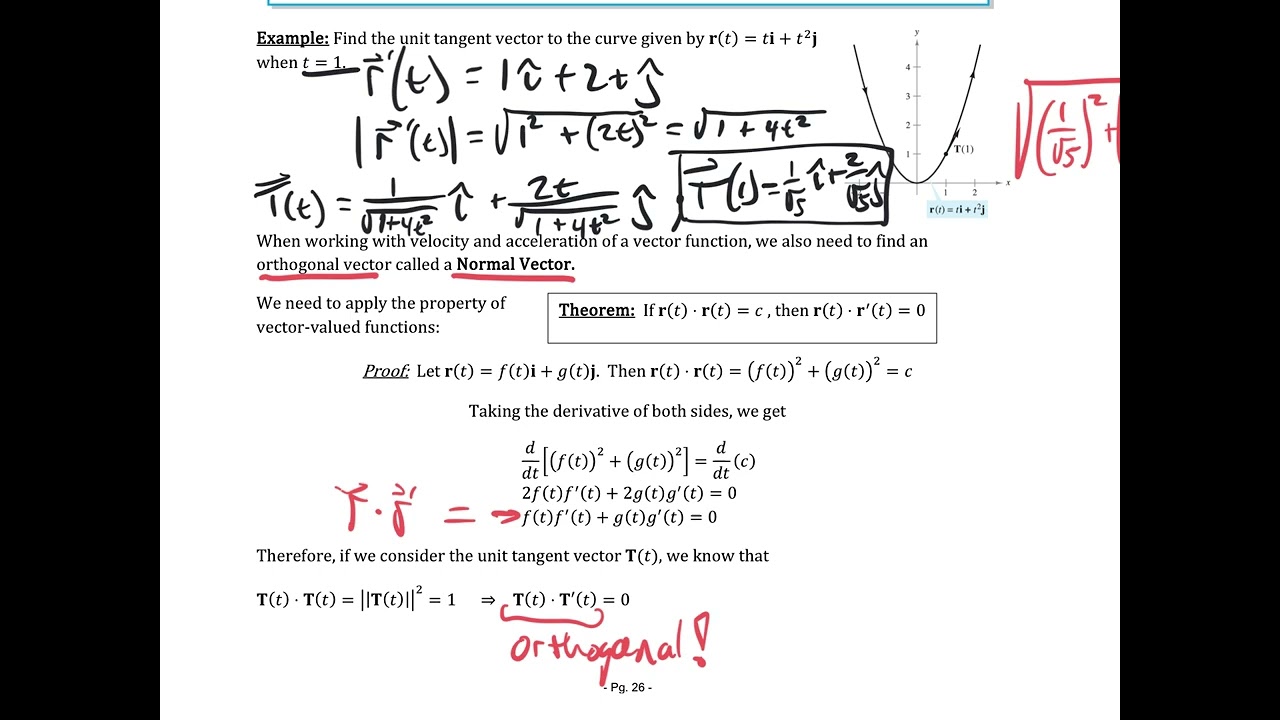 Example: Find the unit tangent vector to the curve given by r(t) = ti + t²j
when t = 1.
r⃗'(t) = 1î + 2tĵ
|r⃗'(t)| = √(1² + (2t)²) = √(1 + 4t²)
T⃗(t) = 1/√(1+4t²) î + 2t/√(1+4t²) ĵ
T⃗(1) = 1/√5 î + 2/√5 ĵ
y
4
3
2
1
T(1)
1
2
x
r(t) = ti + t²j
√((1/√5)² + (
When working with velocity and acceleration of a vector function, we also need to find an
orthogonal vector called a Normal Vector.
We need to apply the property of
vector-valued functions:
Theorem: If r(t) · r(t) = c , then r(t) · r′(t) = 0
Proof: Let r(t) = f(t)i + g(t)j. Then r(t) · r(t) = (f(t))² + (g(t))² = c
Taking the derivative of both sides, we get
d/dt[(f(t))² + (g(t))²] = d/dt(c)
2f(t)f′(t) + 2g(t)g′(t) = 0
r⃗ · r⃗' = → f(t)f′(t) + g(t)g′(t) = 0
Therefore, if we consider the unit tangent vector T(t), we know that
T(t) · T(t) = ||T(t)||² = 1 ⇒ T(t) · T′(t) = 0
orthogonal!
- Pg. 26 -